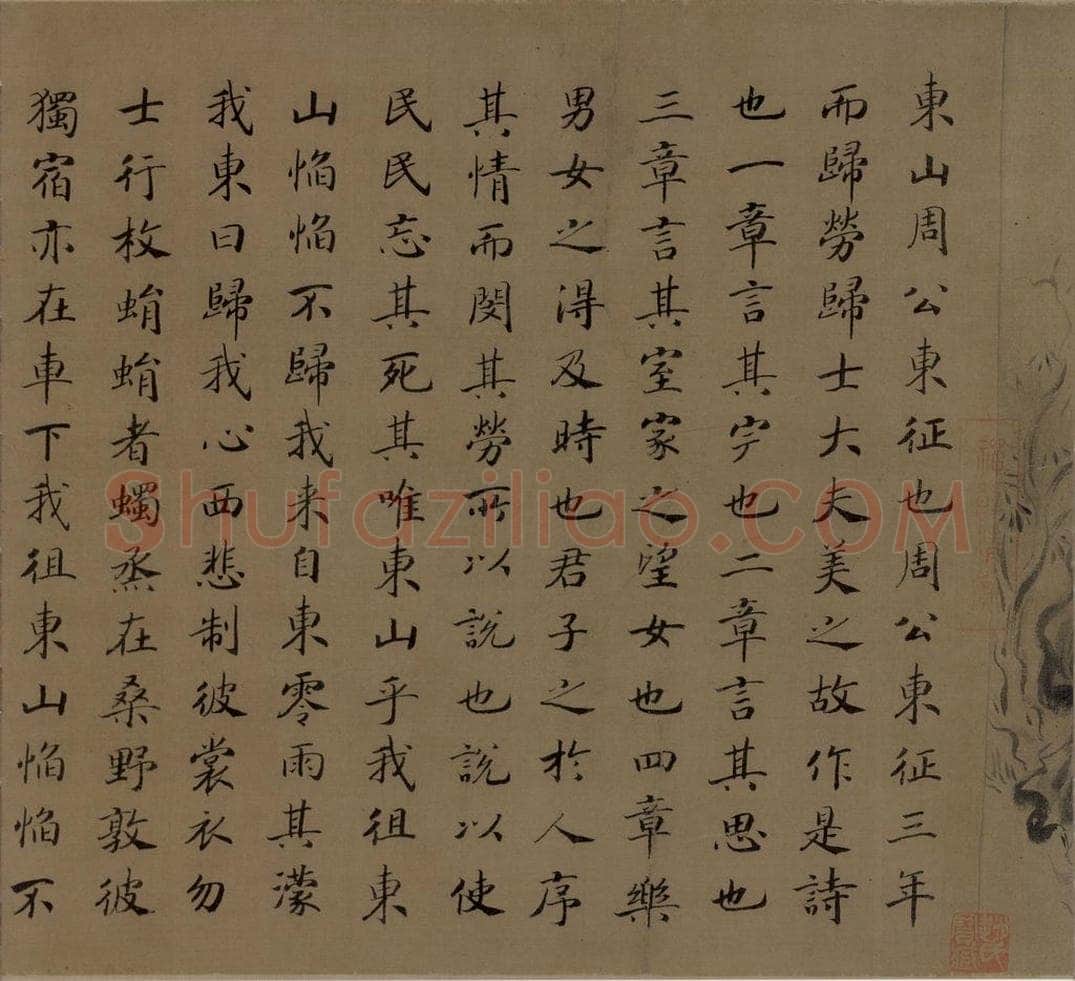 東山周公東征也周公東征三年
而歸勞歸士大夫美之故作是詩
也一章言其完也二章言其思也
三章言其室家之望女也四章樂
男女之得及時也君子之於人序
其情而閔其勞所以說也說以使
民民忘其死其唯東山乎我徂東
山慆慆不歸我来自東零雨其濛
我東曰歸我心西悲制彼裳衣勿
士行枚蜎蜎者蠋烝在桑野敦彼
獨宿亦在車下我徂東山慆慆不
Shufaziliao.COM